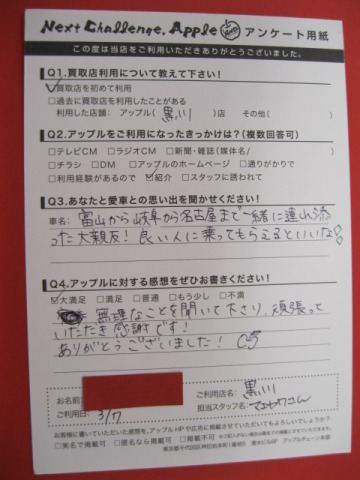 Next Challenge, Apple アンケート用紙
この度は当店をご利用いただきありがとうございました。
Q1.買取店利用について教えて下さい!
☑買取店を初めて利用
□過去に買取店を利用したことがある
利用した店舗: アップル(黒川)店 その他( )
Q2.アップルをご利用になったきっかけは?(複数回答可)
□テレビCM □ラジオCM □新聞・雑誌(媒体名/ )
□チラシ □DM □アップルのホームページ □通りがかりで
□利用経験があるので ☑紹介 □スタッフに誘われて
Q3.あなたと愛車との思い出を聞かせください!
車名: 富山から岐阜から名古屋まで一緒に連れ添
った大親友! 良い人に乗ってもらえるといいな!
Q4.アップルに対する感想をぜひお書きください!
☑大満足 □満足 □普通 □もう少し □不満
無理なことを聞いて下さり、頑張って
いただき感謝です!
ありがとうございました!
お名前
ご利用日: 3/7
ご利用店名: 黒川
担当スタッフ名:
お客様に書いていただいた感想を、アップルHPや広告に掲載させていただいてもよろしいでしょうか?
□実名で掲載可 □匿名なら掲載可 □掲載不可
東京都千代田区神田岩本町1番地5 清水ビル8F アップルチェーン本部